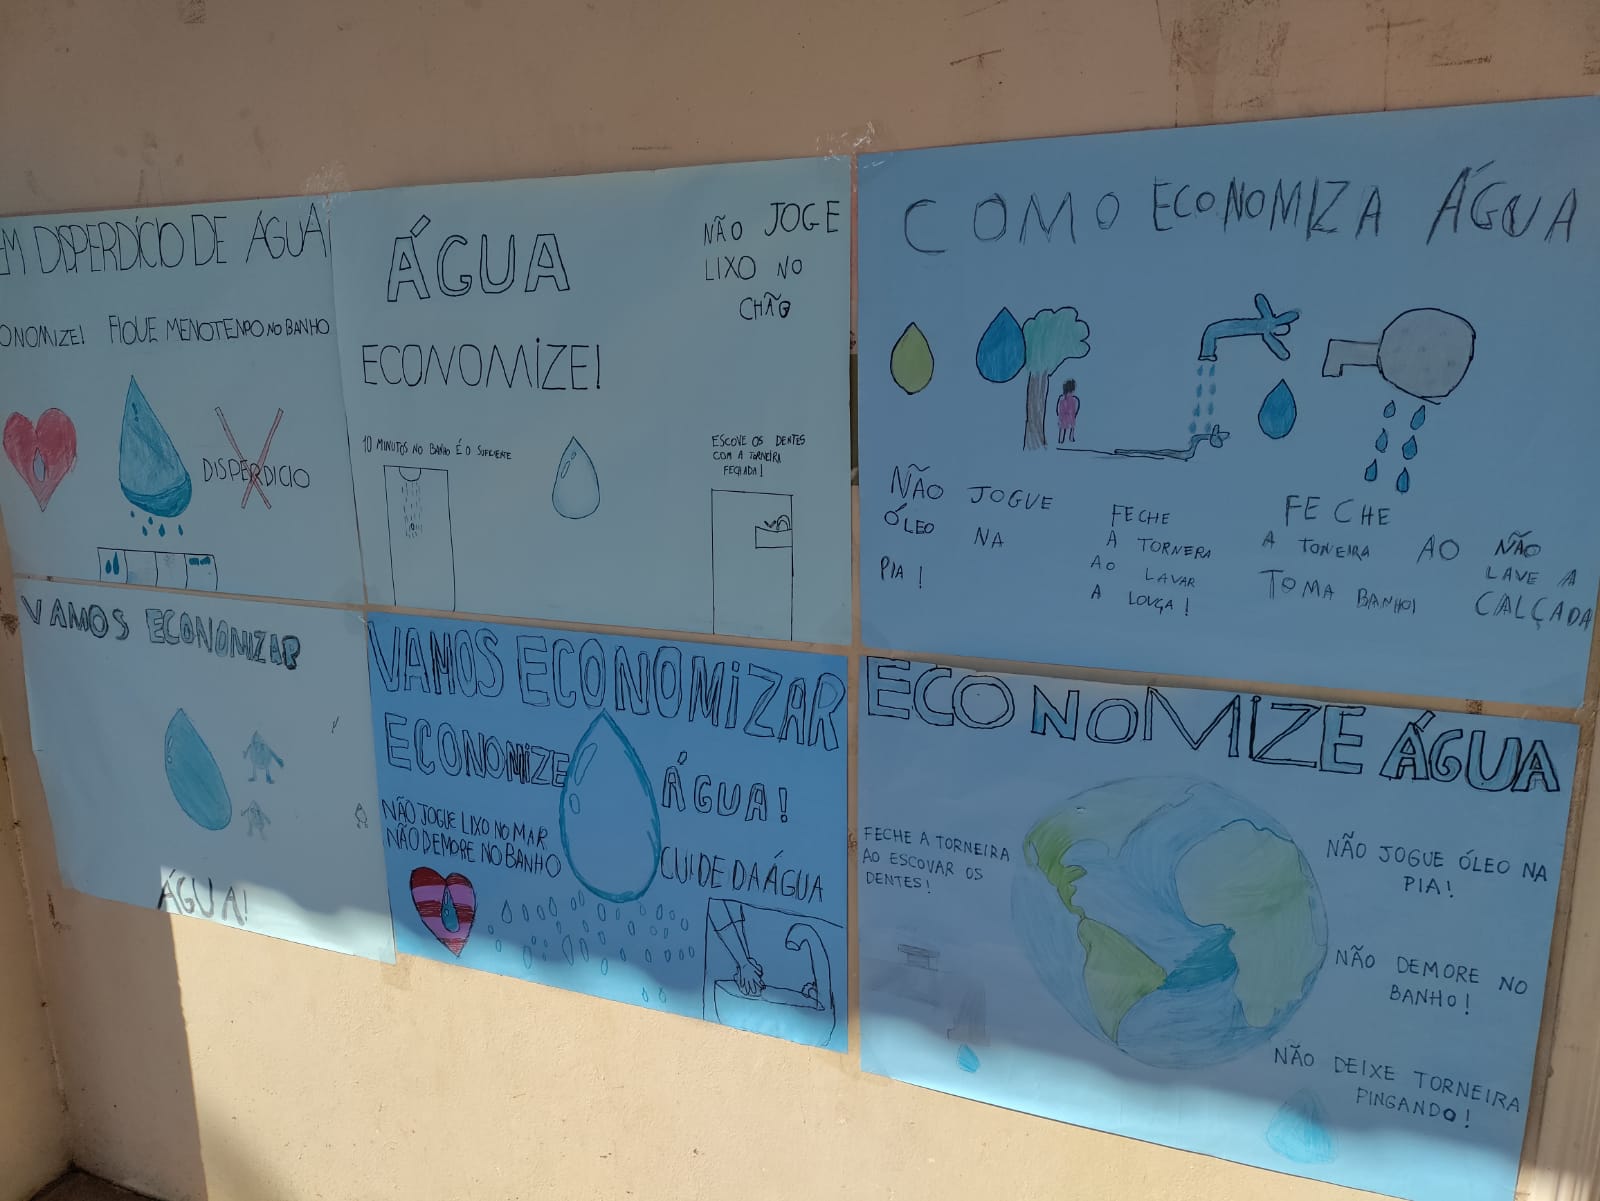 EM DISPERDÍCIO DE ÁGUA!
ONOMIZE! FIQUE MENOTENPO NO BANHO
DISPERDICIO
ÁGUA
ECONOMIZE!
NÃO JOGE
LIXO NO
CHÃO
10 MINUTOS NO BANHO É O SUFICIENTE
ESCOVE OS DENTES
COM A TORNEIRA
FECHADA!
COMO ECONOMIZA ÁGUA
NÃO JOGUE
ÓLEO NA
PIA!
FECHE
A TORNERA
AO LAVAR
A LOUÇA!
FECHE
A TONEIRA AO
TOMA BANHO!
NÃO
LAVE A
CALÇADA
VAMOS ECONOMIZAR
ÁGUA!
VAMOS ECONOMIZAR
ECONOMIZE
ÁGUA!
NÃO JOGUE LIXO NO MAR
NÃO DEMORE NO BANHO
CUIDE DA ÁGUA
ECONOMIZE ÁGUA
FECHE A TORNEIRA
AO ESCOVAR OS
DENTES!
NÃO JOGUE ÓLEO NA
PIA!
NÃO DEMORE NO
BANHO!
NÃO DEIXE TORNEIRA
PINGANDO!